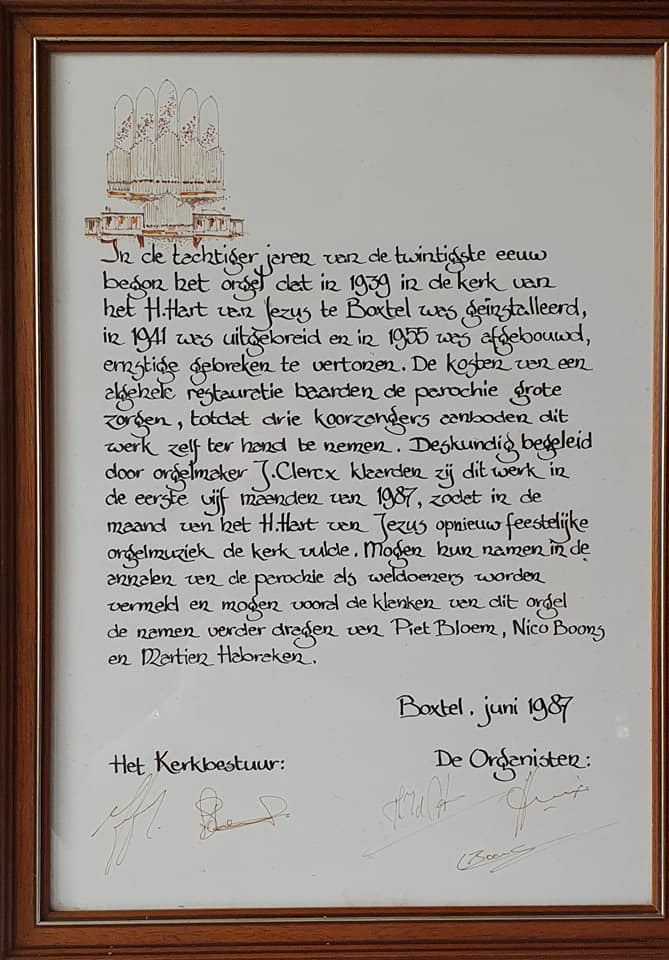 In de tachtiger jaren van de twintigste eeuw
begon het orgel dat in 1939 in de kerk van
het H.Hart van Jezus te Boxtel was geïnstalleerd,
in 1941 was uitgebreid en in 1955 was afgebouwd,
ernstige gebreken te vertonen. De kosten van een
algehele restauratie baarden de parochie grote
zorgen, totdat drie koorzangers aanboden dit
werk zelf ter hand te nemen. Deskundig begeleid
door orgelmaker J.Clercx klaarden zij dit werk in
de eerste vijf maanden van 1987, zodat in de
maand van het H.Hart van Jezus opnieuw feestelijke
orgelmuziek de kerk vulde. Mogen hun namen in de
annalen van de parochie als weldoeners worden
vermeld en mogen vooral de klanken van dit orgel
de namen verder dragen van Piet Bloem, Nico Boons
en Martien Habraken.
Boxtel, juni 1987
Het Kerkbestuur:
De Organisten:
Boons